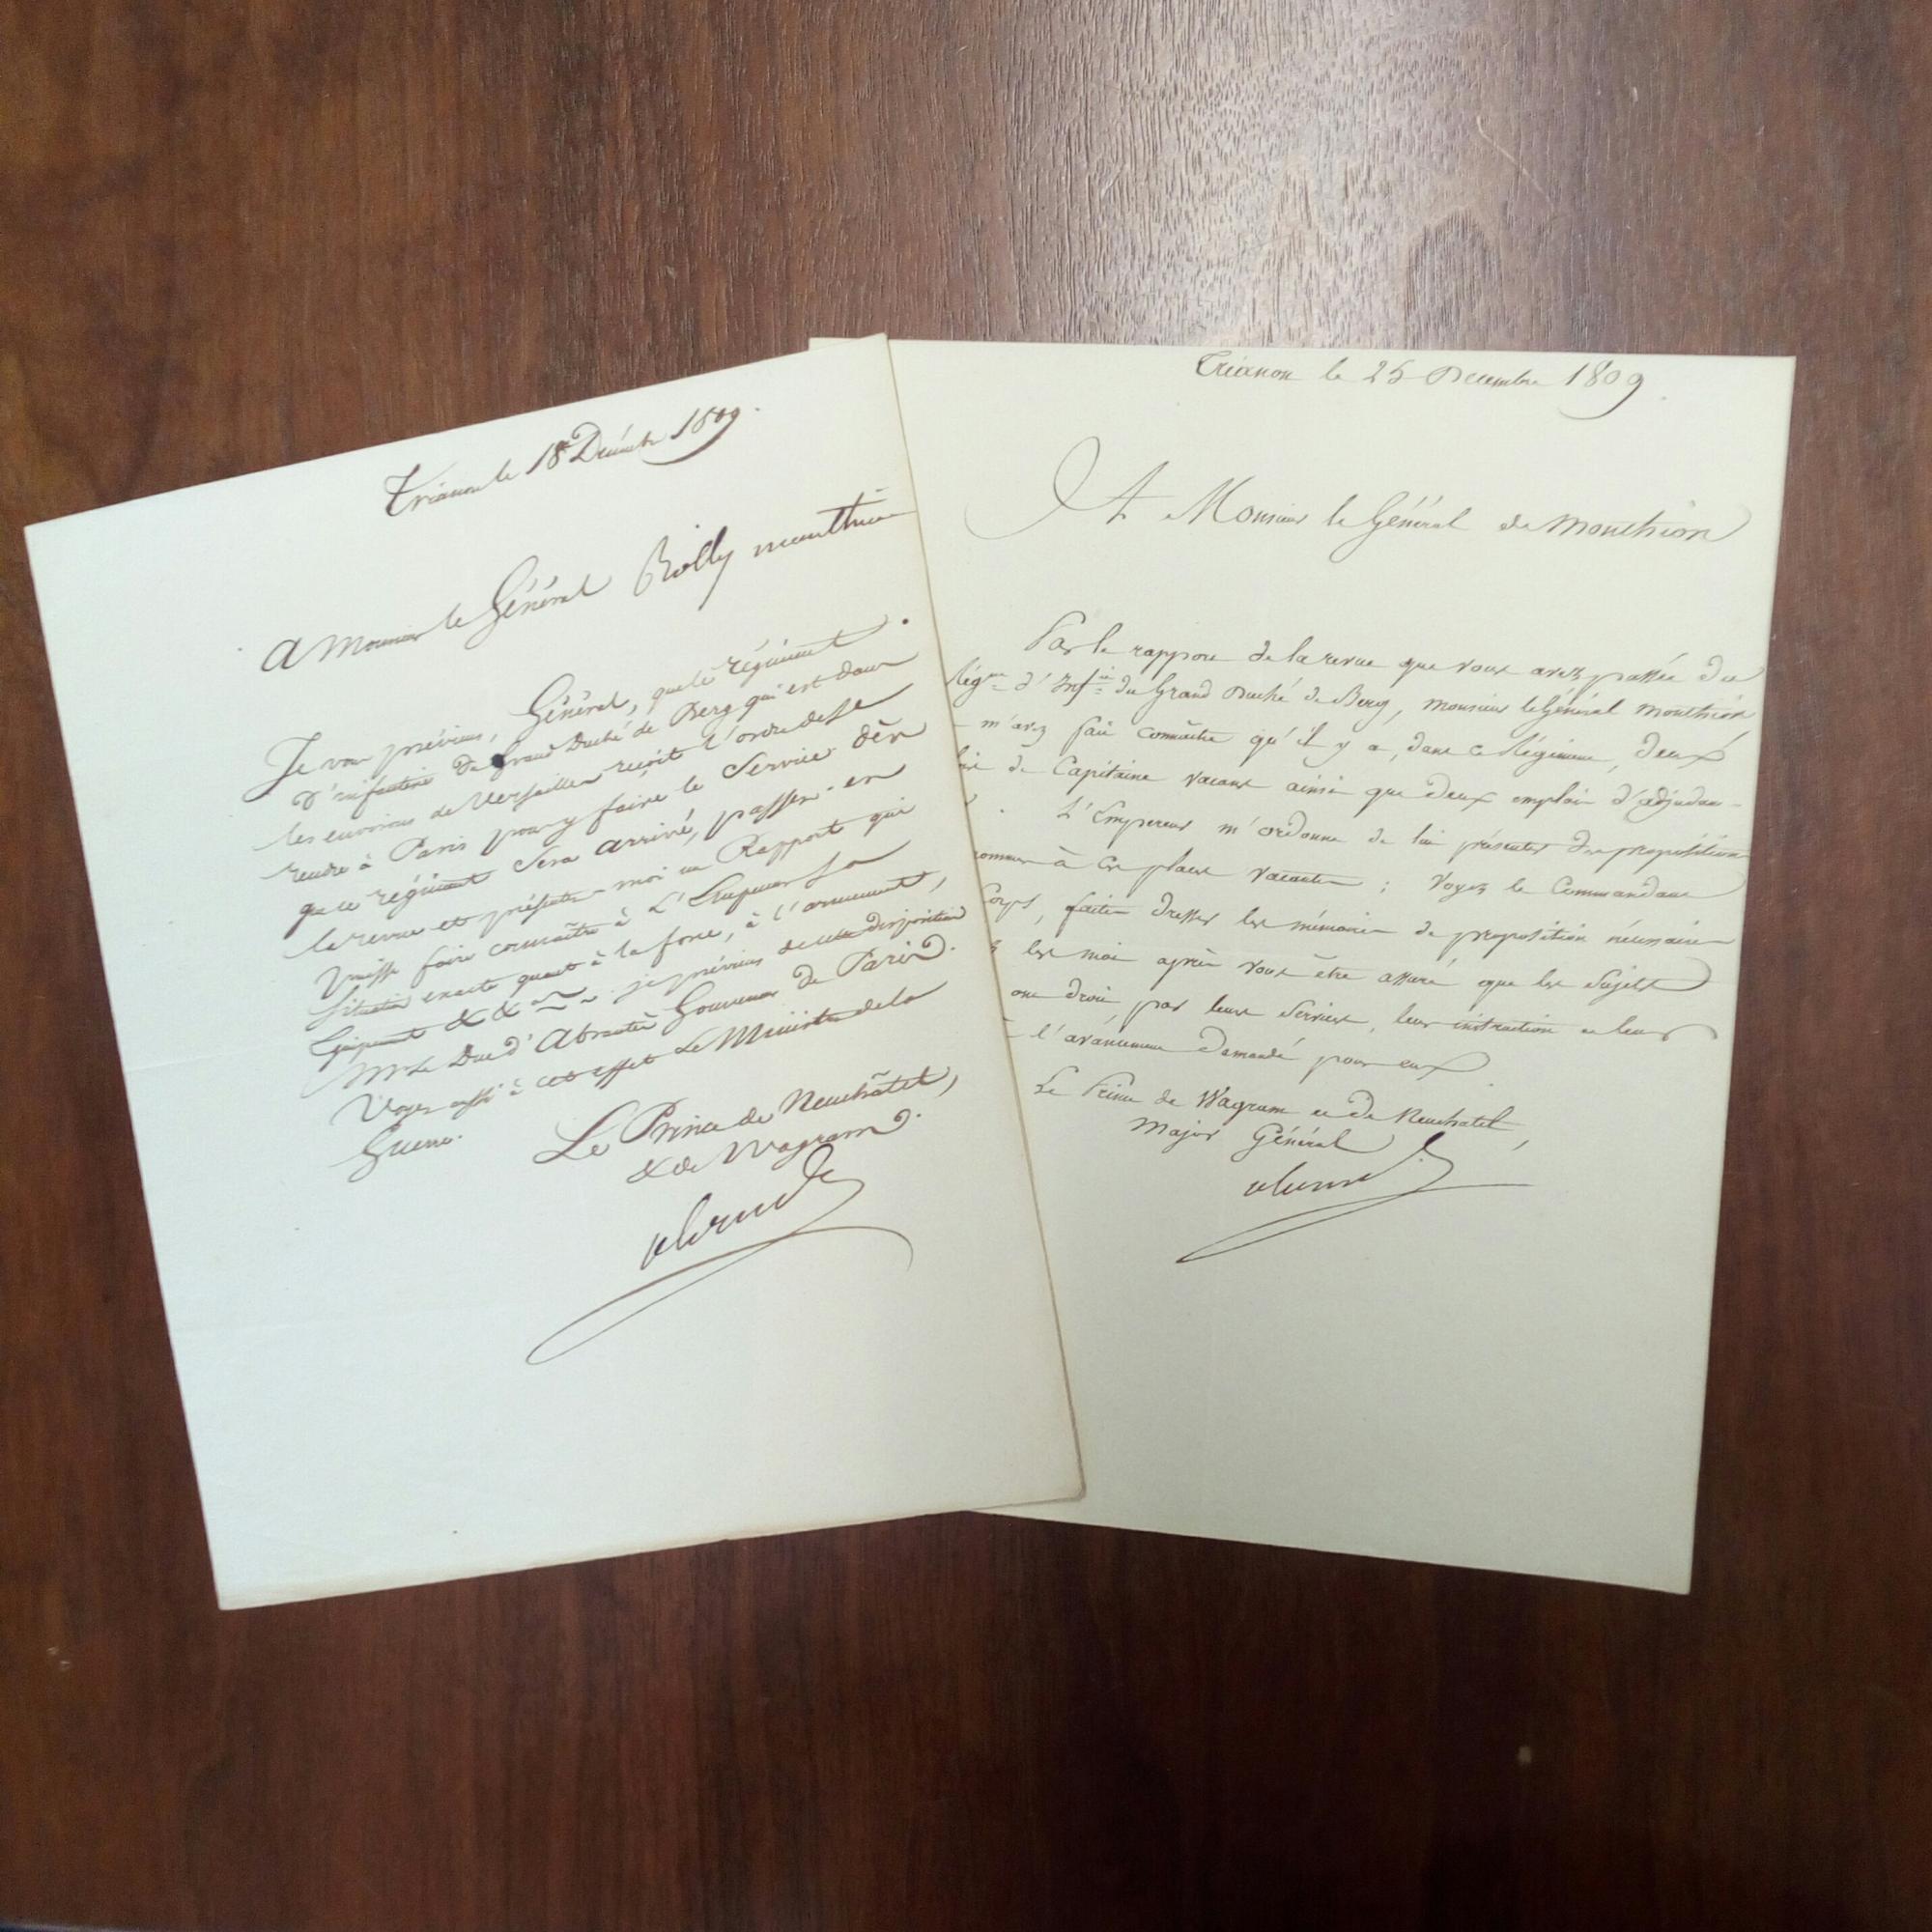 Trianon le 18 Décembre 1809.
A Monsieur le Général Bailly monthion
Je vous préviens, Général, que le régiment
d'infanterie du Grand Duché de Berg qui est dans
les environs de Versailles reçoit l'ordre de se
rendre à Paris pour y faire le Service dès
que le régiment sera arrivé, passez-en
la revue et présentez-moi un Rapport qui
puisse faire connaître à L'Empereur sa
situation exacte quant à la force, à l'armement,
équipement &&a je préviens de cette disposition
Mr Le Duc d'Abrantès Gouverneur de Paris.
Voyez aussi à cet effet Le Ministre de la
Guerre.
Le Prince de Neuchâtel,
& de Wagram.
Trianon le 25 Decembre 1809
A Monsieur le Général de Monthion
Par le rapport de la revue que vous avez passée du
Régnt d'Infie du Grand Duché de Berg, monsieur le Général Monthion
m'avez fait connaître qu'il y a, dans ce Régiment, deux
de Capitaine vacans ainsi que deux emplois d'adjudan-
L'Empereur m'ordonne de lui présenter des propositions
à ces places vacantes ; Voyez le Commandant
Corps, faites dresser les mémoires de proposition nécessaires
les moi après vous être assuré que les Sujets
ont droit, par leurs Services, leur instruction et leur
l'avancement demandé pour eux
Le Prince de Wagram et de Neuchatel,
Major Général